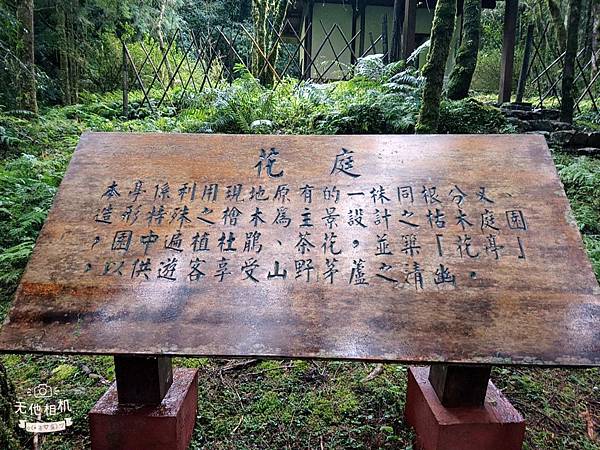 花庭
本亭係利用現地原有的一株同根分叉、
造形特殊之檜木為主景設計之枯木庭園
，園中遍植杜鵑、茶花，並築「花亭」
，以供遊客享受山野茅蘆之清幽。
无他相机